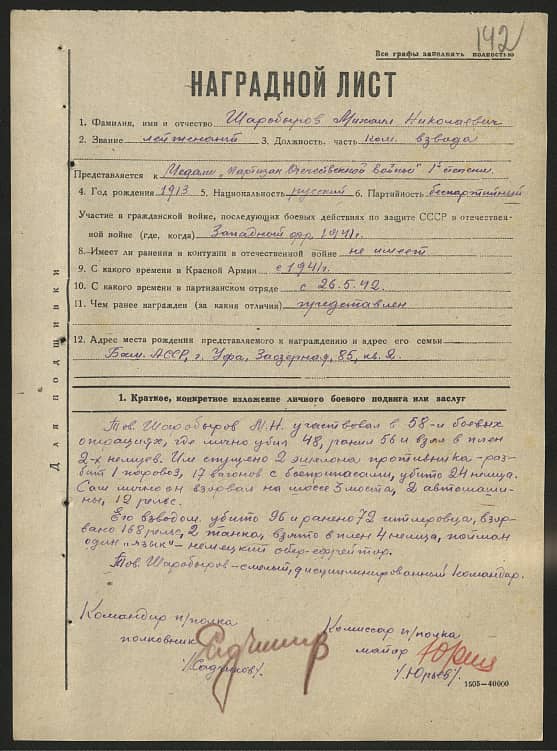 142
Все графы заполнять полностью
НАГРАДНОЙ ЛИСТ
1. Фамилия, имя и отчество Шаробыров Михаил Николаевич
2. Звание лейтенант 3. Должность, часть ком. взвода
Представляется к Медали „Партизан Отечественной войны" 1й степени.
4. Год рождения 1913 5. Национальность русский 6. Партийность беспартийный
Участие в гражданской войне, последующих боевых действиях по защите СССР в отечествен-
ной войне (где, когда) Западный фр 1941г.
8. Имеет ли ранения и контузии в отечественной войне не имеет
9. С какого времени в Красной Армии с 1941г.
10. С какого времени в партизанском отряде с 26.5.42.
11. Чем ранее награжден (за какия отличия) представлен
12. Адрес места рождения представляемого к награждению и адрес его семьи
Баш. АССР, г. Уфа, Заозерная, 85, кв. 2.
Для подшивки
1. Краткое, конкретное изложение личного боевого подвига или заслуг
Тов. Шаробыров М.Н. участвовал в 58-и боевых
операциях, где лично убил 48, ранил 56 и взял в плен
2-х немцев. Им спущено 2 эшелона противника - раз-
бит 1 паровоз, 17 вагонов с боеприпасами, убито 24 немца.
Сам лично он взорвал на шоссе 3 моста, 2 автомаши-
ны, 12 рельс.
Его взводом убито 96 и ранено 72 гитлеровца, взор-
вано 168 рельс, 2 танка, взято в плен 4 немца, пойман
один „язык" - немецкий обер-ефрейтор.
Тов. Шаробыров - смелый, дисциплинированный командир.
Командир п/полка
полковник
/Садчиков/.
Комиссар п/полка
майор
/Юрьев/.
1505—40000